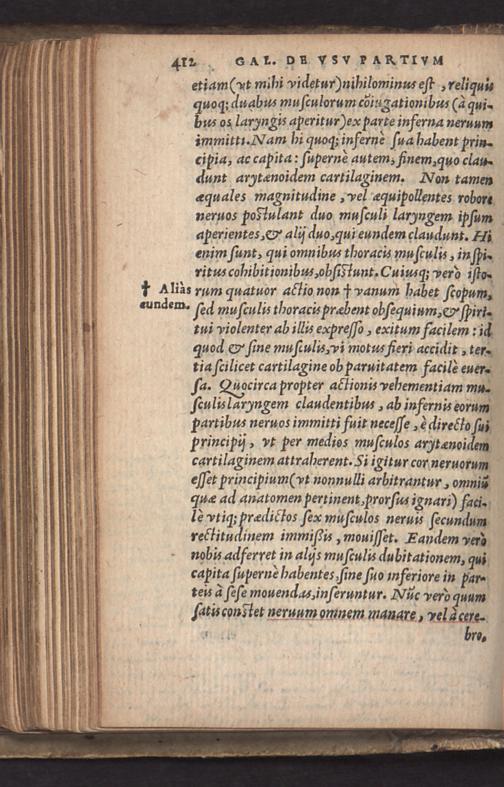 412 GAL. DE VSV PARTIVM
etiam (vt mihi videtur) nihilominus est, reliquis
quoq; duabus musculorum cõiugationibus (à qui-
bus os laryngis aperitur) ex parte inferna neruum
immitti. Nam hi quoq; infernè sua habent prin-
cipia, ac capita: supernè autem, finem, quo clau-
dunt arytænoidem cartilaginem. Non tamen
æquales magnitudine, vel æquipollentes robore
neruos postulant duo musculi laryngem ipsum
aperientes, & alij duo, qui eundem claudunt. Hi
enim sunt, qui omnibus thoracis musculis, in spi-
ritus cohibitionibus, obsistunt. Cuiusq; verò isto-
rum quatuor actio non † vanum habet scopum,
† Aliàs
eundem.
sed musculis thoracis præbent obsequium, & spiri-
tui violenter ab illis expresso, exitum facilem: id
quod & sine musculis, vi motus fieri accidit, ter-
tia scilicet cartilagine ob paruitatem facilè euer-
sa. Quocirca propter actionis vehementiam mu-
sculis laryngem claudentibus, ab infernis eorum
partibus neruos immitti fuit necesse, è directo sui
principij, vt per medios musculos arytænoidem
cartilaginem attraherent. Si igitur cor neruorum
esset principium (vt nonnulli arbitrantur, omniũ
quæ ad anatomen pertinent, prorsus ignari) faci-
lè vtiq; prædictos sex musculos neruis secundum
rectitudinem immißis, mouisset. Eandem verò
nobis adferret in alijs musculis dubitationem, qui
capita supernè habentes, sine suo inferiore in par-
teis à sese mouendas, inseruntur. Nũc verò quum
satis constet neruum omnem manare, vel à cere-
bro,